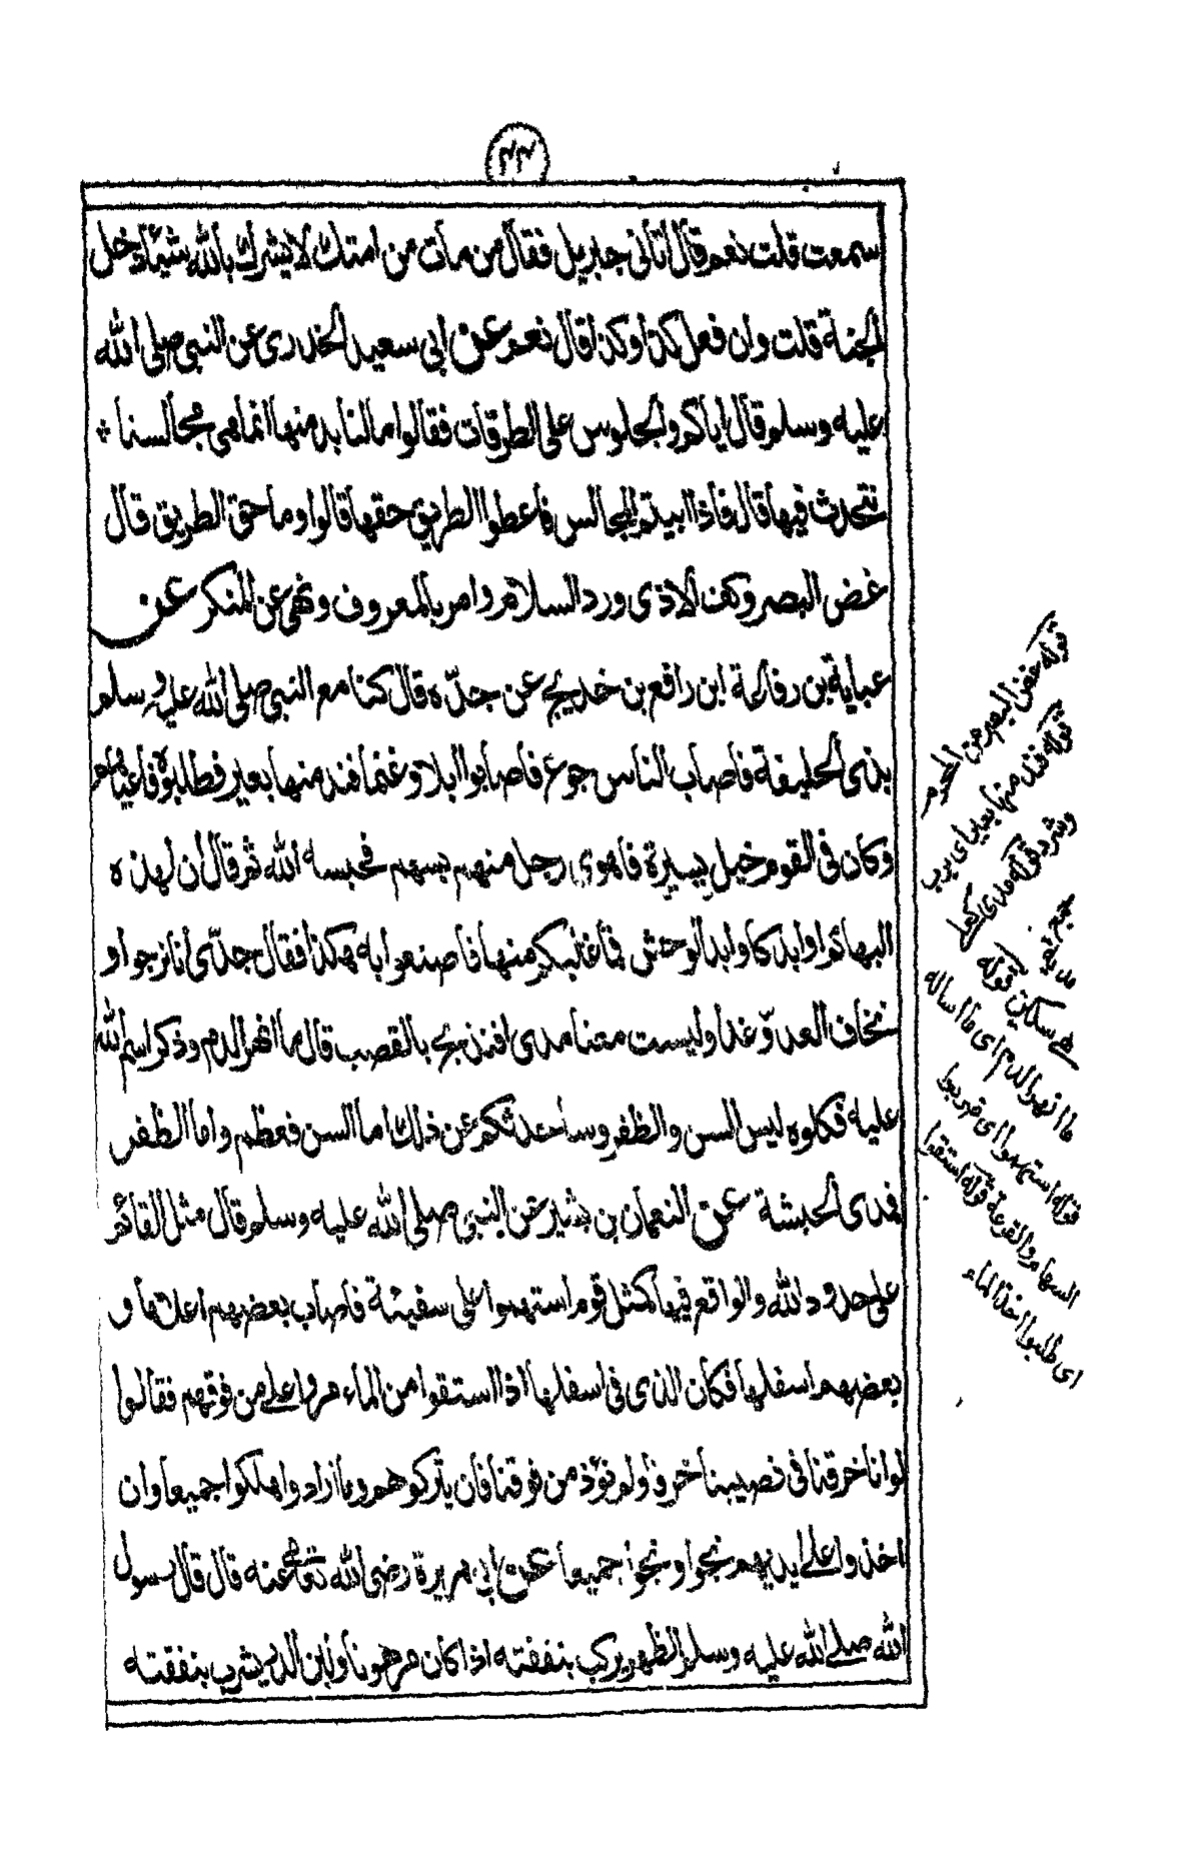 ٢٣
سمعت قلت نعم قال أتانى جبريل فقال من مات من امتك لا يشرك بالله شيئا دخل
الجنة قلت وان فعل كذا وكذا قال نعم عن ابي سعيد الخدرى عن النبي صلى الله
عليه وسلم قال اياكم والجلوس على الطرقات فقالوا مالنا بد منها انما هي مجالسنا
نتحدث فيها قال فاذا ابيتم الا المجالس فأعطوا الطريق حقها قالوا وما حق الطريق قال
غض البصر وكف الاذى ورد السلام وامر بالمعروف ونهي عن المنكر عن
عباية بن رفاعة ابن رافع بن خديج عن جدّه قال كنا مع النبي صلى الله عليه وسلم
بذى الحليفة فأصاب الناس جوع فأصابوا ابلا وغنما فند منها بعير فطلبوه فأعياهم
وكان فى القوم خيل يسيرة فاهوى رجل منهم بسهم فحبسه الله ثم قال ان لهذه
البهائم اوابد كأوابد الوحش فما غلبكم منها فأصنعوا به هكذا فقال جدّى انا نرجوا و
نخاف العدوّ غدا وليست معنا مدى افنذبح بالقصب قال ما انهر الدم وذكر اسم الله
عليه فكلوه ليس السن والظفر وسأحدثكم عن ذلك اما السن فعظم واما الظفر
فمدى الحبشة عن النعمان بن بشير عن النبي صلى الله عليه وسلم قال مثل القائم
على حدود الله والواقع فيها كمثل قوم استهموا على سفينة فأصاب بعضهم اعلاها و
بعضهم اسفلها فكان الذى فى اسفلها اذا استقوا من الماء مروا على من فوقهم فقالوا
لو انا خرقنا فى نصيبنا خرقا ولم نؤذ من فوقنا فأن يتركوهم وما ارادوا هلكوا جميعا وان
اخذوا على ايديهم نجوا ونجوا جميعا عن ابي هريرة رضى الله تعالى عنه قال قال رسول
الله صلى الله عليه وسلم الظهر يركب بنفقته اذا كان مرهونا ولبن الدر يشرب بنفقته
قوله غض البصر عن المحرم
قوله فند منها بعير اى هرب
وشرد قوله مدى
جمع مدية
هي سكين قوله
ما انهر الدم اى ما اساله
قوله استهموا اى ضربوا
السهام والقرعة قوله استقوا
اى طلبوا اخذ الماء